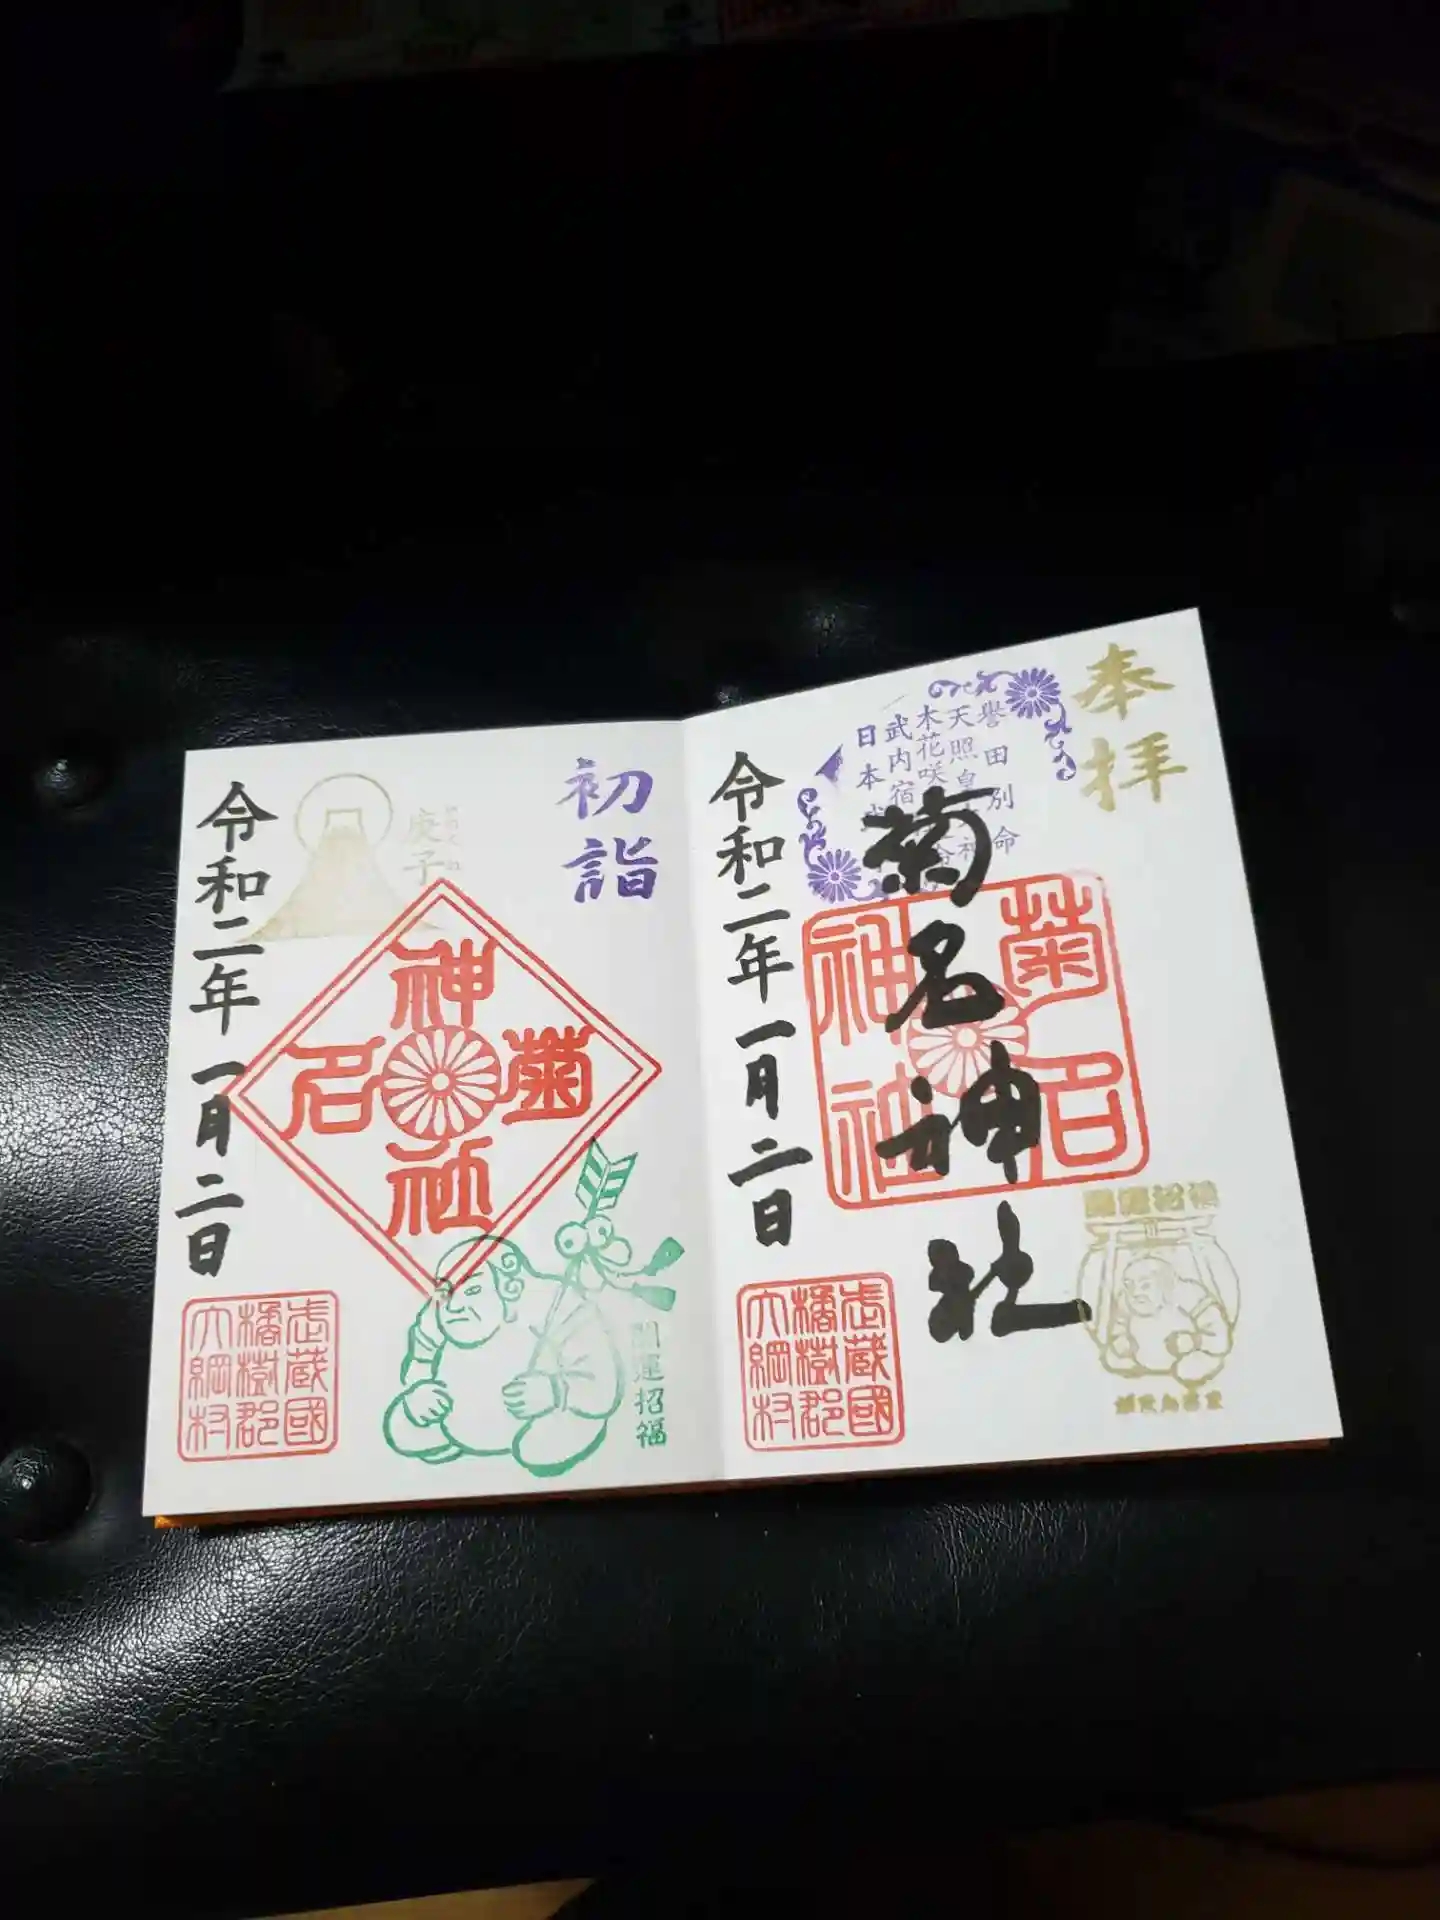 奉拝
誉田別命
天照皇
木花咲
武内宿
日本武
菊名神社
菊名神社
令和二年一月二日
武蔵國
橘樹郡
大綱村
初詣
庚子
菊名神社
開運招福
令和二年一月二日
武蔵國
橘樹郡
大綱村